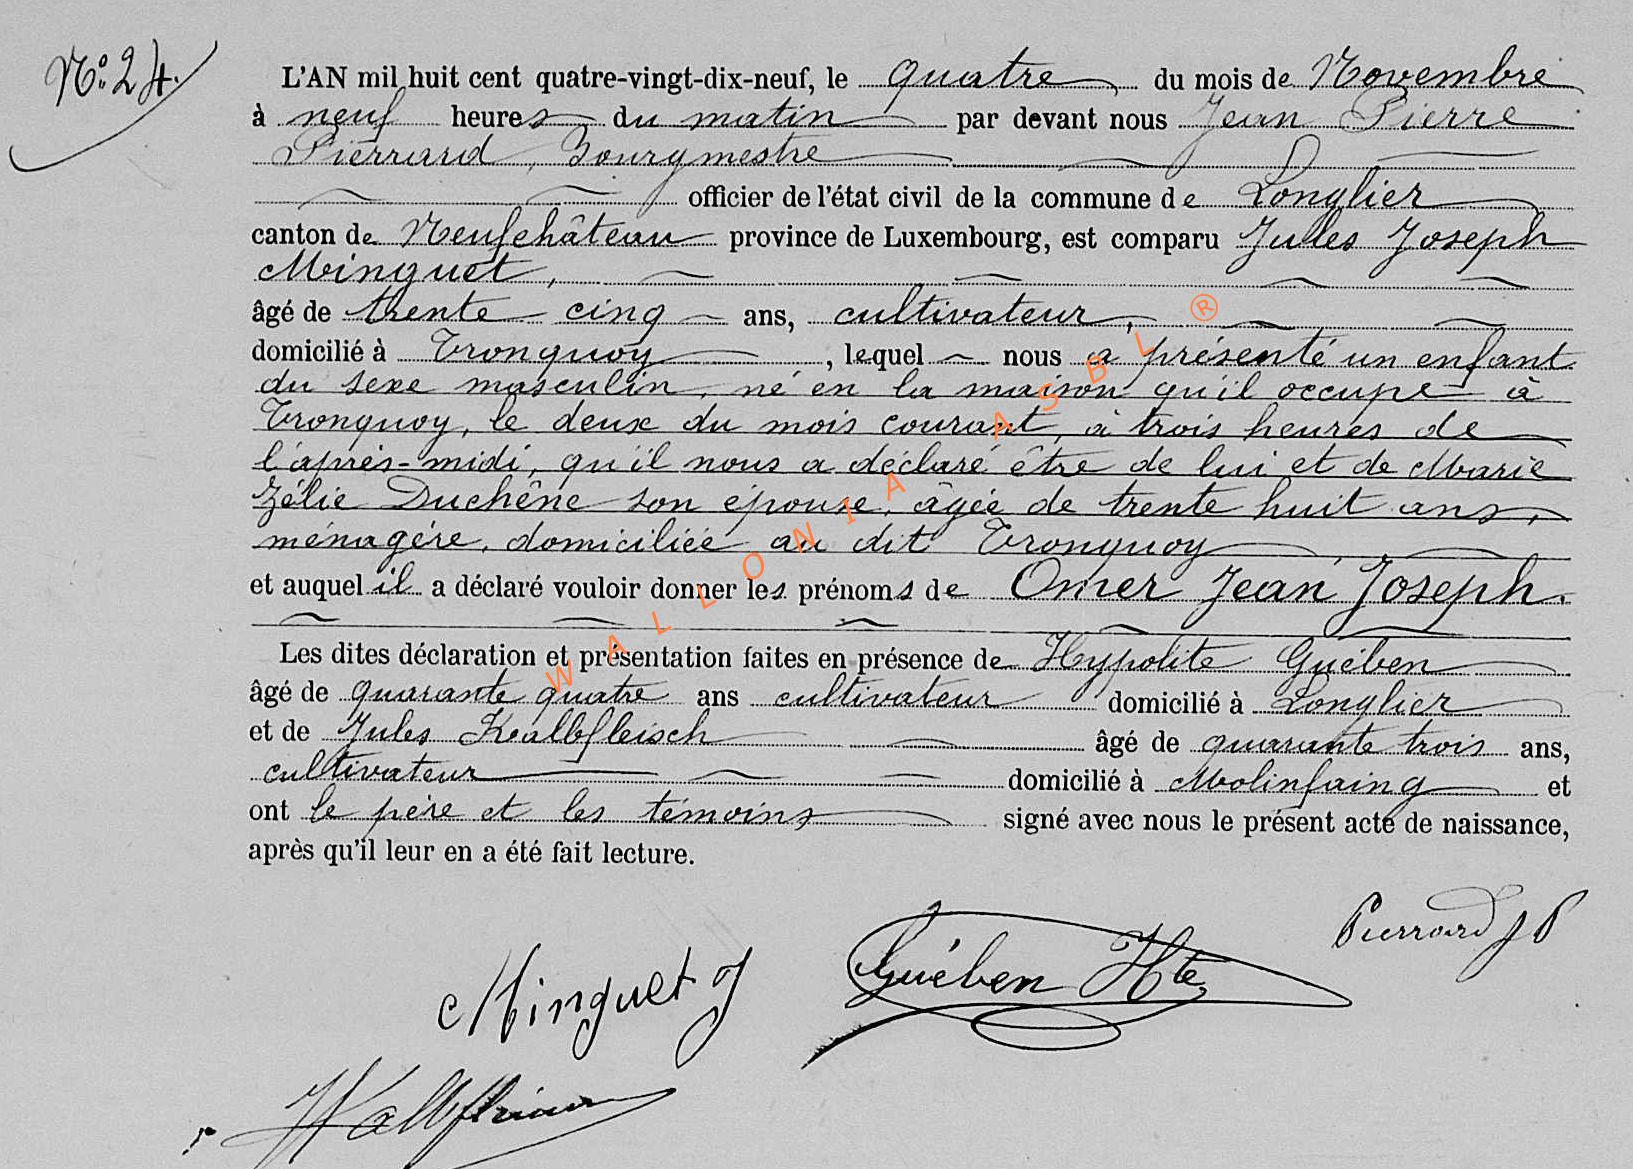 N° 24.
L'AN mil huit cent quatre-vingt-dix-neuf, le quatre du mois de Novembre
à neuf heures du matin par devant nous Jean Pierre
Pierrard, Bourgmestre
officier de l'état civil de la commune de Longlier
canton de Neufchâteau province de Luxembourg, est comparu Jules Joseph
Minguet,
âgé de trente cinq ans, cultivateur,
domicilié à Tronquoy, lequel nous a présenté un enfant
du sexe masculin, né en la maison qu'il occupe à
Tronquoy, le deux du mois courant, à trois heures de
l'après-midi, qu'il nous a déclaré être de lui et de Marie
Zélie Duchêne son épouse, âgée de trente huit ans,
ménagère, domiciliée au dit Tronquoy
et auquel il a déclaré vouloir donner les prénoms de Omer Jean Joseph.
Les dites déclaration et présentation faites en présence de Hypolite Guében
âgé de quarante quatre ans cultivateur domicilié à Longlier
et de Jules Kalbfleisch âgé de quarante trois ans,
cultivateur domicilié à Molinfaing et
ont le père et les témoins signé avec nous le présent acte de naissance,
après qu'il leur en a été fait lecture.
Pierrard J P
Minguet J
Guében Hte
WALLONIA ASBL ®